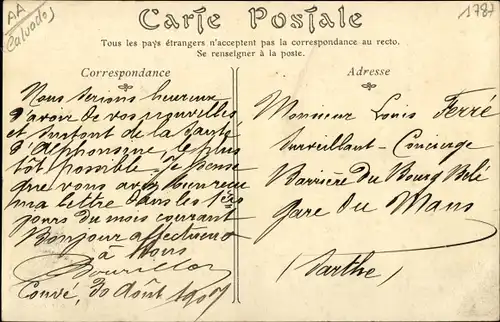 AA
Calvados
1787
Carte Postale
Tous les pays étrangers n'acceptent pas la correspondance au recto.
Se renseigner à la poste.
Correspondance
Nous serions heureux
d'avoir de vos nouvelles
et surtout de la santé
d'Alphonsine, le plus
tôt possible. Je pense
que vous avez bien reçu
ma lettre dans les 1ers
jours du mois courant
Bonjour affectueux
à tous
30 Août 1907
Adresse
Monsieur Louis Ferré
Surveillant-Concierge
Barrière du Bourg Belé
gare du Mans
(Sarthe)